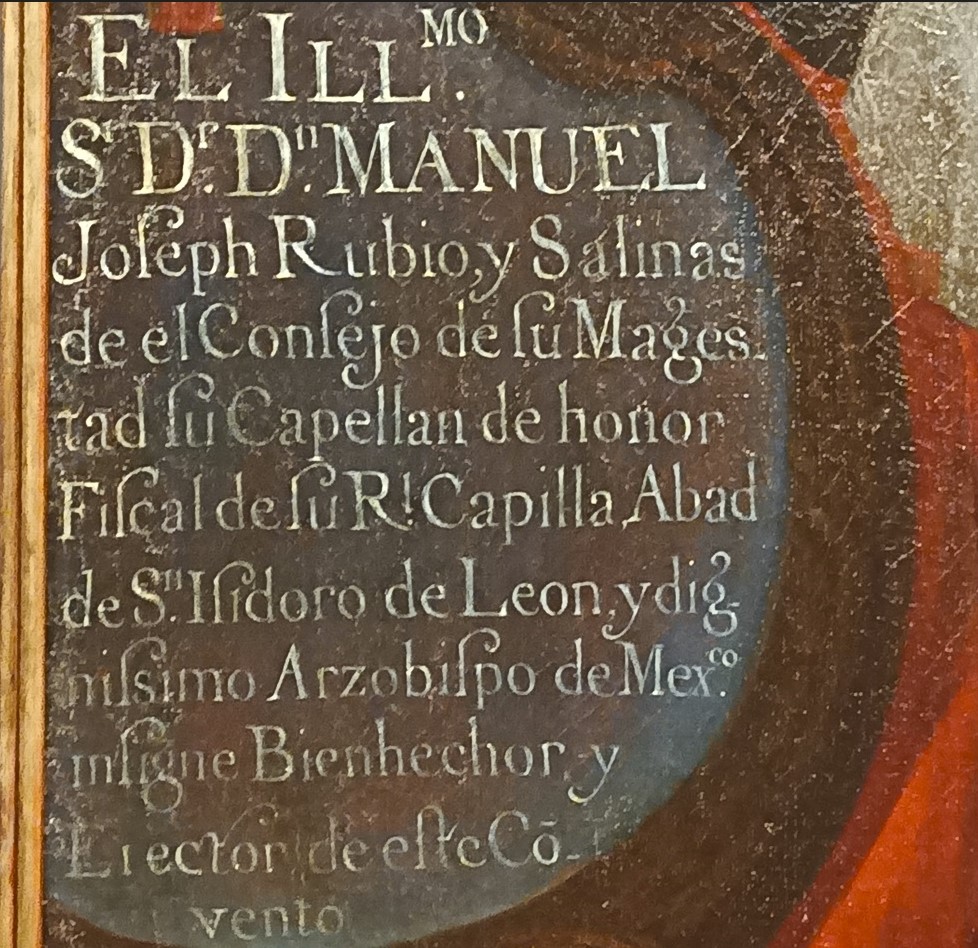 EL ILL.ᴹᴼ
Sʳ Dʳ. Dⁿ. MANUEL
Joſeph Rubio, y Salinas
de el Conſejo de ſu Mages-
tad ſu Capellan de honor
Fiſcal de ſu Rˡ. Capilla Abad
de Sⁿ. Iſidoro de Leon, y dig-
niſsimo Arzobiſpo de Mexᶜᵒ.
inſigne Bienhechor, y
Erector de eſte Cō-
vento